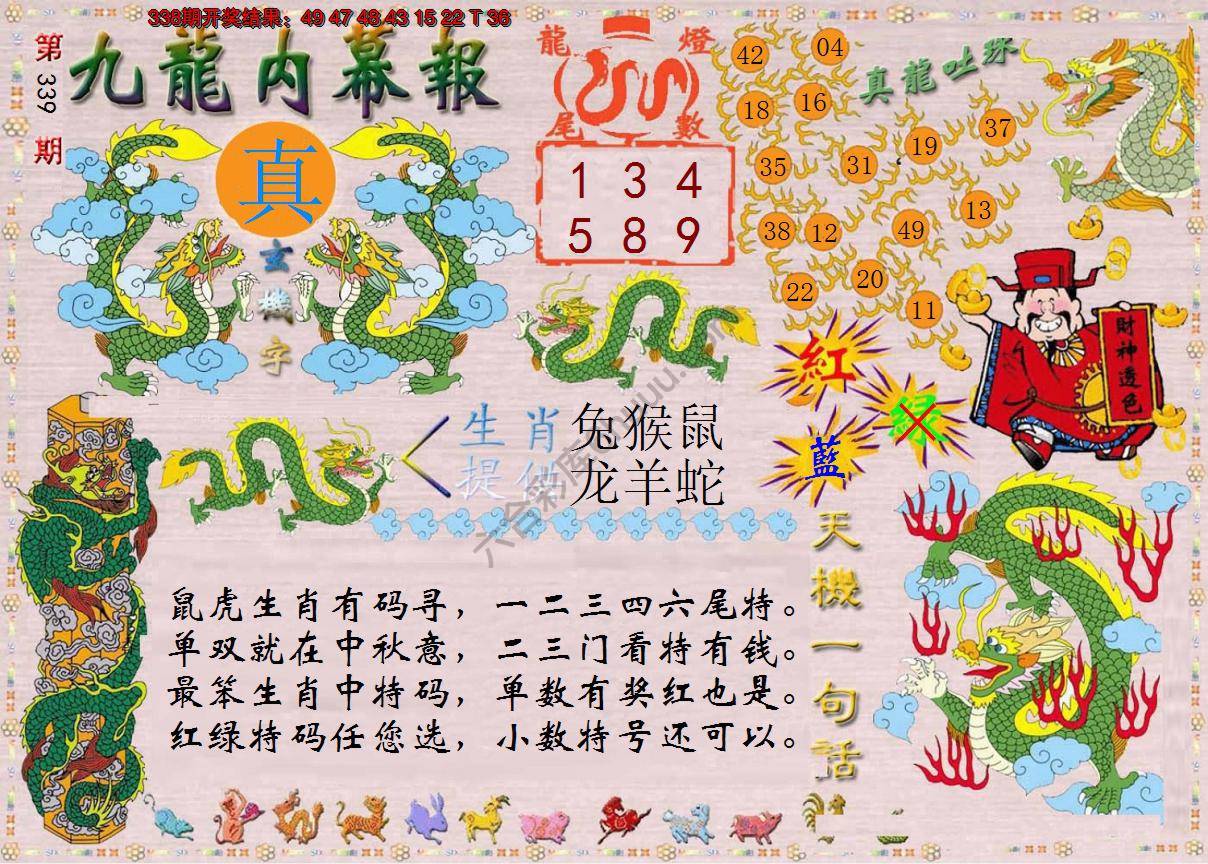 338期开奖结果：49 47 48 43 15 22 T 36
第339期
九龍内幕報
真
玄機字
龍燈尾數
1 3 4
5 8 9
真龍吐珠
42 04
18 16
35 31 19 37
38 12 49 13
22 20 11
紅
綠
藍
財神透色
生肖提供
兔猴鼠
龙羊蛇
天機一句話
鼠虎生肖有码寻，一二三四六尾特。
单双就在中秋意，二三门看特有钱。
最笨生肖中特码，单数有奖红也是。
红绿特码任您选，小数特号还可以。